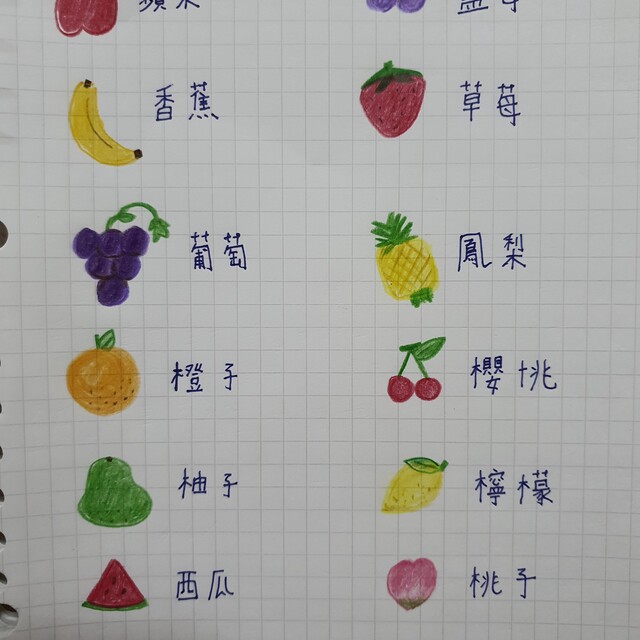 蘋果 藍莓
香蕉 草莓
葡萄 鳳梨
橙子 櫻桃
柚子 檸檬
西瓜 桃子